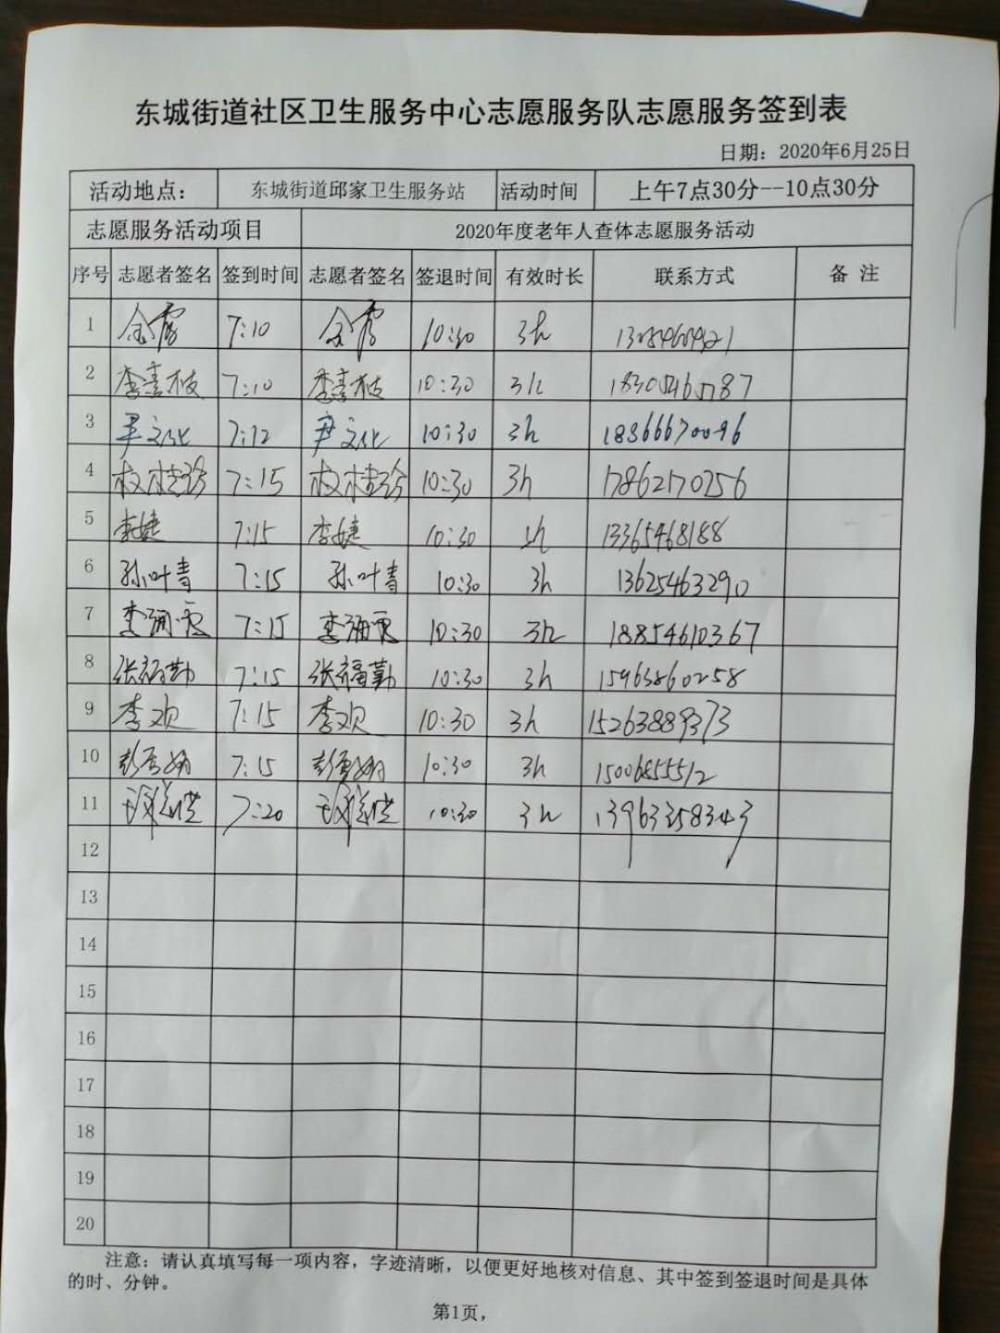 东城街道社区卫生服务中心志愿服务队志愿服务签到表
日期：2020年6月25日
活动地点： 东城街道邱家卫生服务站 活动时间 上午7点30分--10点30分
志愿服务活动项目 2020年度老年人查体志愿服务活动
序号 志愿者签名 签到时间 志愿者签名 签退时间 有效时长 联系方式 备 注
1 7:10 10:30 3h
2 7:10 10:30 3h
3 尹文化 7:12 尹文化 10:30 3h 18366670096
4 7:15 10:30 3h 17862170256
5 李婕 7:15 李婕 10:30 13365468188
6 孙叶青 7:15 孙叶青 10:30 3h 13625463290
7 7:15 10:30 3h 18854610367
8 张福勤 7:15 张福勤 10:30 3h 15963860258
9 李欢 7:15 李欢 10:30 3h 15263889373
10 7:15 10:30 3h 15006855512
11 7:20 10:30 3h 13963358343
12
13
14
15
16
17
18
19
20
注意：请认真填写每一项内容，字迹清晰，以便更好地核对信息、其中签到签退时间是具体
的时、分钟。
第1页，